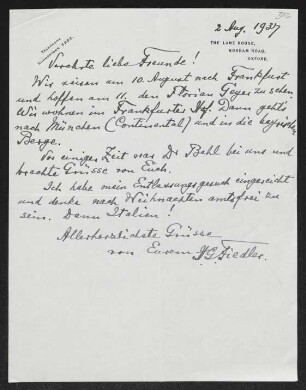 2 Aug. 1937
TELEPHONE
THE LANE HOUSE,
NORHAM ROAD,
OXFORD.
Verehrte liebe Freunde!
Wir reisen am 10. August nach Frankfurt
und hoffen am 11. den Florian Geyer zu sehen.
Wir wohnen im Frankfurter Hof. Dann geht's
nach München (Continental) und in die bayrischen
Berge.
Vor einiger Zeit war Dr Bahl bei uns und
brachte Grüsse von Euch.
Ich habe mein Entlassungsgesuch eingereicht
und denke nach Weihnachten amtsfrei zu
sein. Dann Italien!
Allerherzlichste Grüsse
von Eurem H G Fiedler.